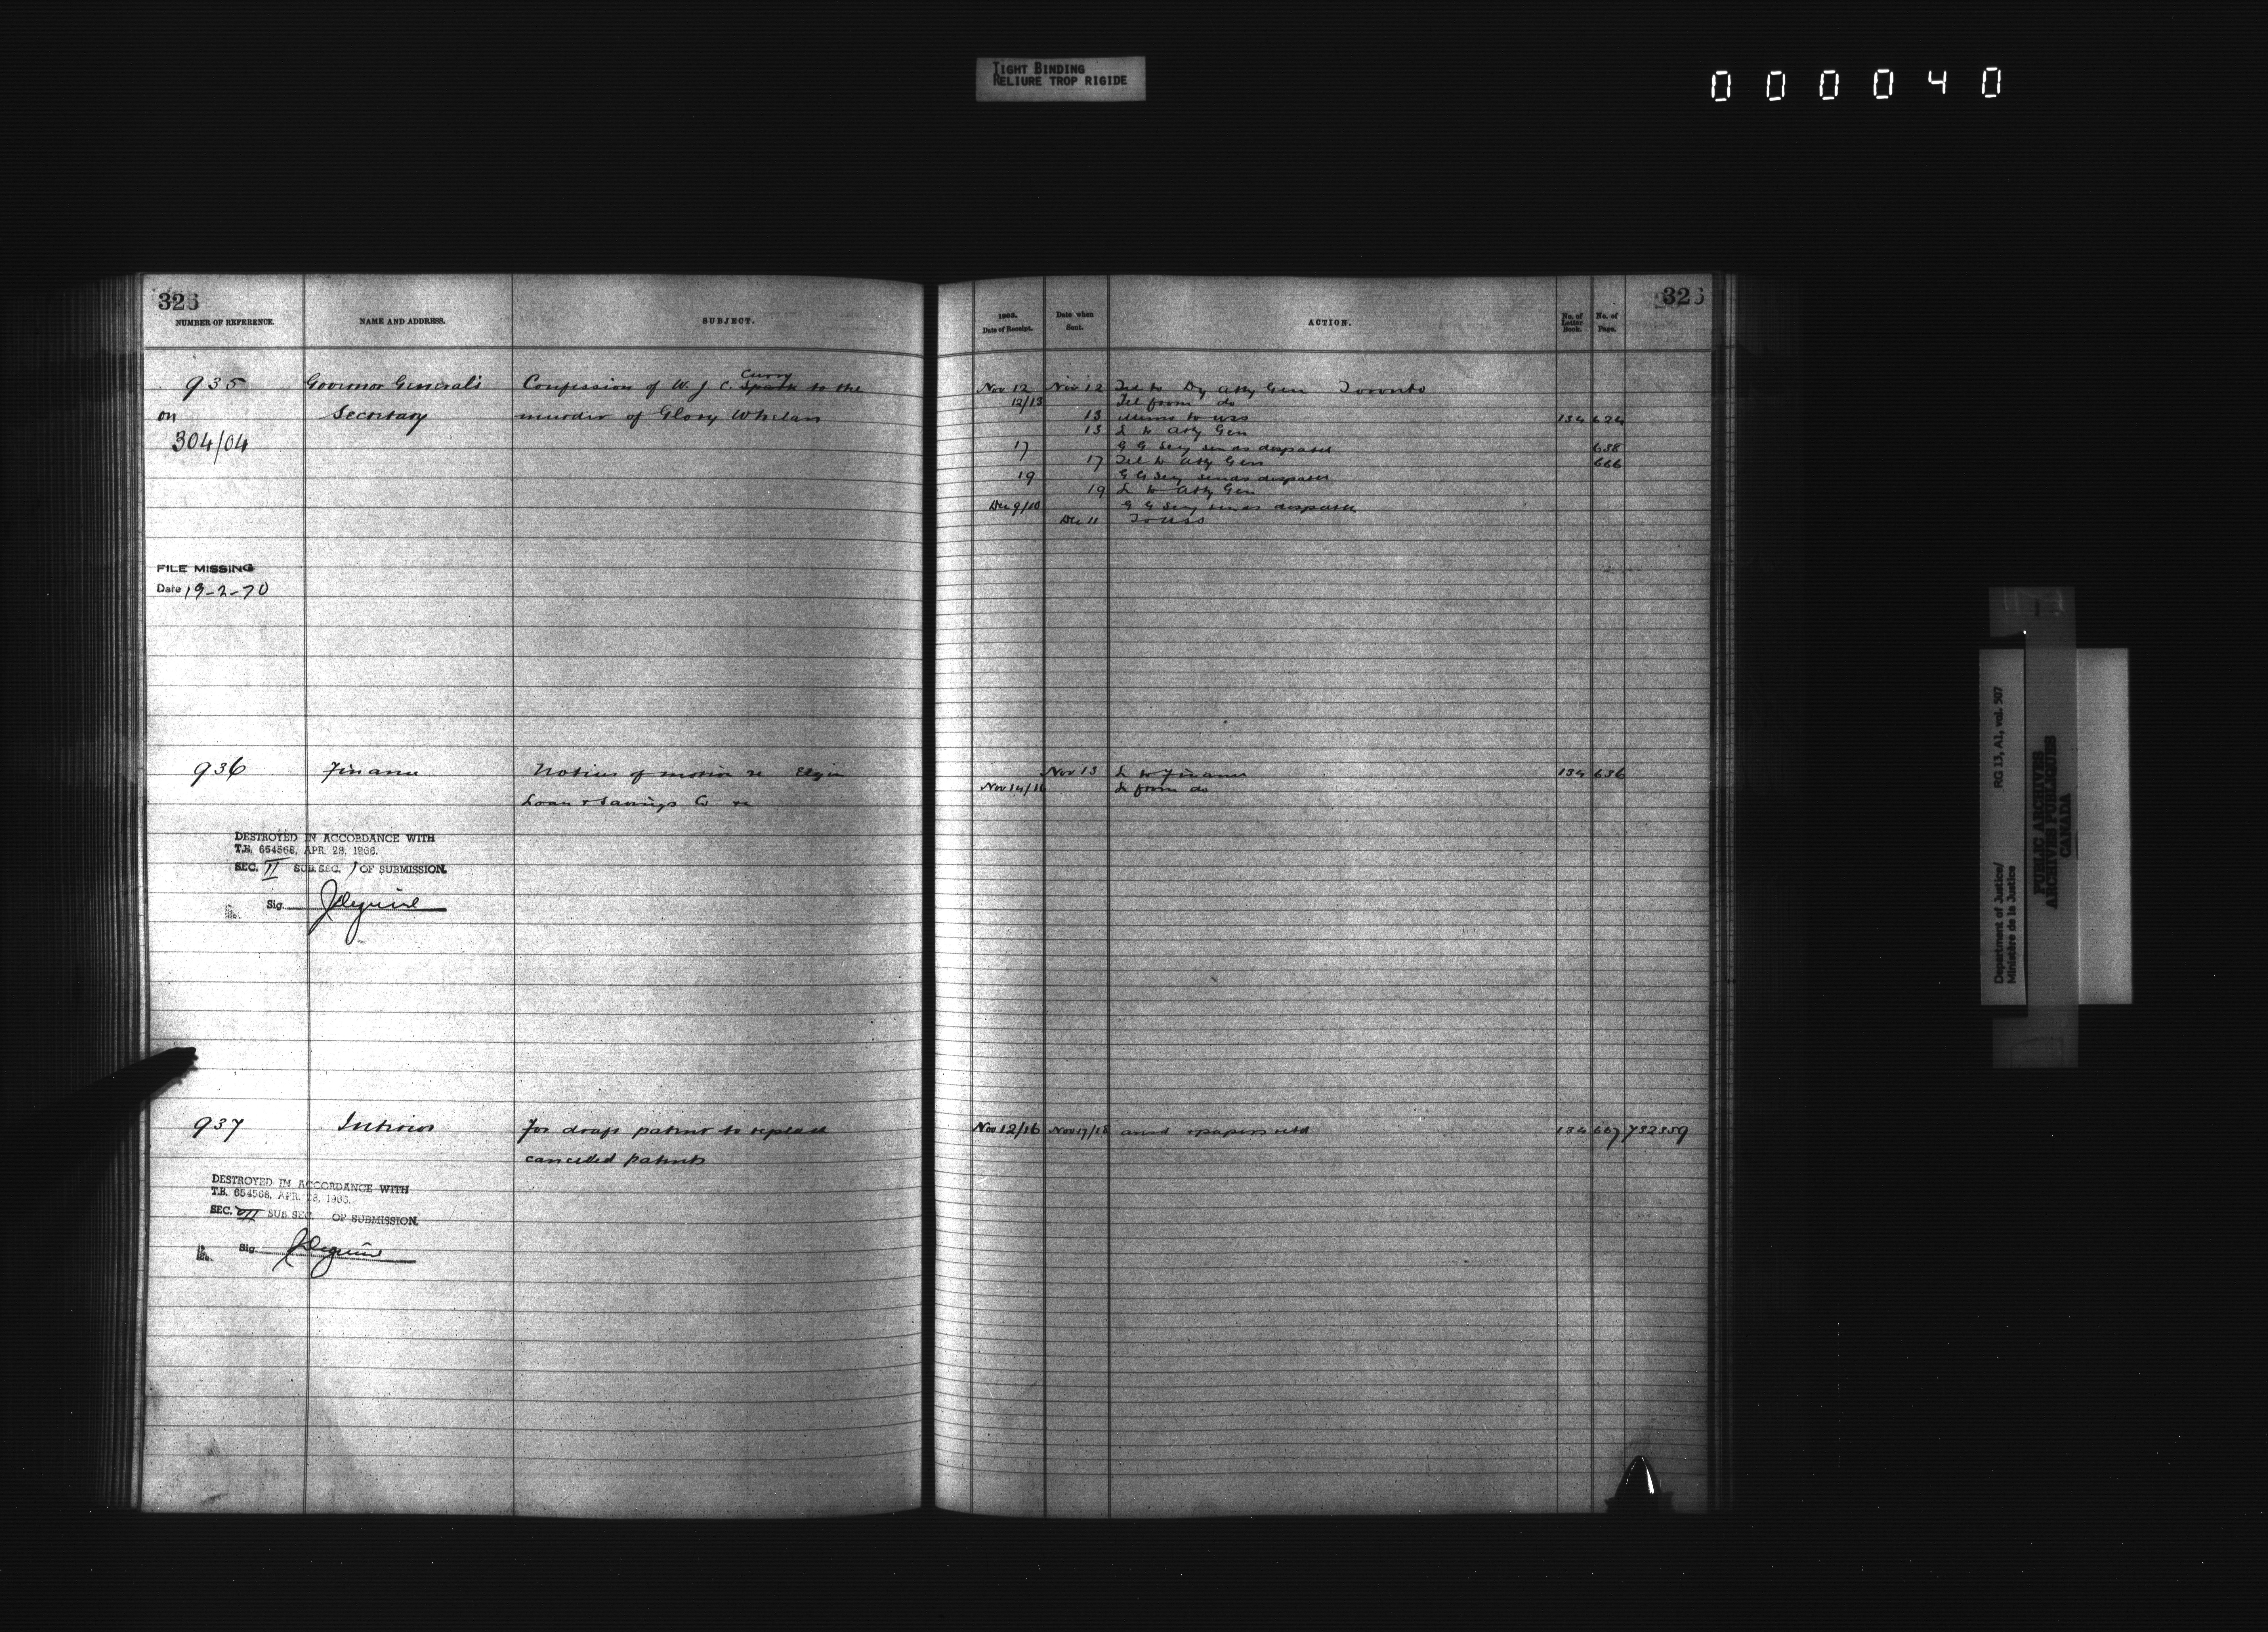 TIGHT BINDING
RELIURE TROP RIGIDE
000040
326
NUMBER OF REFERENCE. NAME AND ADDRESS. SUBJECT.
935 Governor General's Confession of W. J. C. Spark to the
Curry
on Secretary murder of Glory Whelan
304/04
FILE MISSING
Date 19-2-70
936 Finance Notices of motion re Elgin
Loan & Savings Co re
DESTROYED IN ACCORDANCE WITH
T.B. 654568, APR. 28, 1966.
SEC. II SUB. SEC. 1 OF SUBMISSION.
Sig.
937 Interior For draft patent to replace
cancelled patents
DESTROYED IN ACCORDANCE WITH
T.B. 654568, APR. 28, 1966.
SEC. VII SUB. SEC. OF SUBMISSION.
Sig.
326
1903. Date of Receipt. Date when Sent. ACTION. No. of Letter Book. No. of Page.
Nov 12 Nov 12 Tel to Dy Atty Gen Toronto
12/13 Tel from do
13 Memo to USS 134 624
13 L to Atty Gen
17 G G Secy sends despatch 638
17 Tel to Atty Gen 666
19 G G Secy sends despatch
19 L to Atty Gen
Dec 9/10 G G Secy sends despatch
Dec 11 To USS
Nov 13 L to Finance 134 636
Nov 14/16 L from do
Nov 12/16 Nov 17/18 ansd & papers retd 134 667 732359
Department of Justice/
Ministère de la Justice
RG 13, A1, vol. 507
PUBLIC ARCHIVES
ARCHIVES PUBLIQUES
CANADA